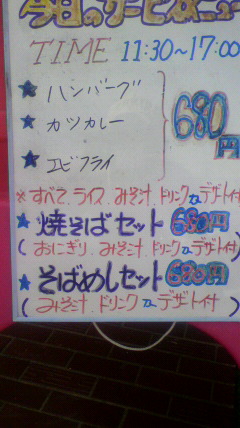 今日のサービスメニュー
TIME 11:30〜17:00
★ ハンバーグ
★ カツカレー
★ エビフライ
680円
※すべて、ライス、みそ汁、ドリンク or デザート付
★焼そばセット 680円
(おにぎり、みそ汁、ドリンク or デザート付)
★そばめしセット 680円
(みそ汁、ドリンク or デザート付)